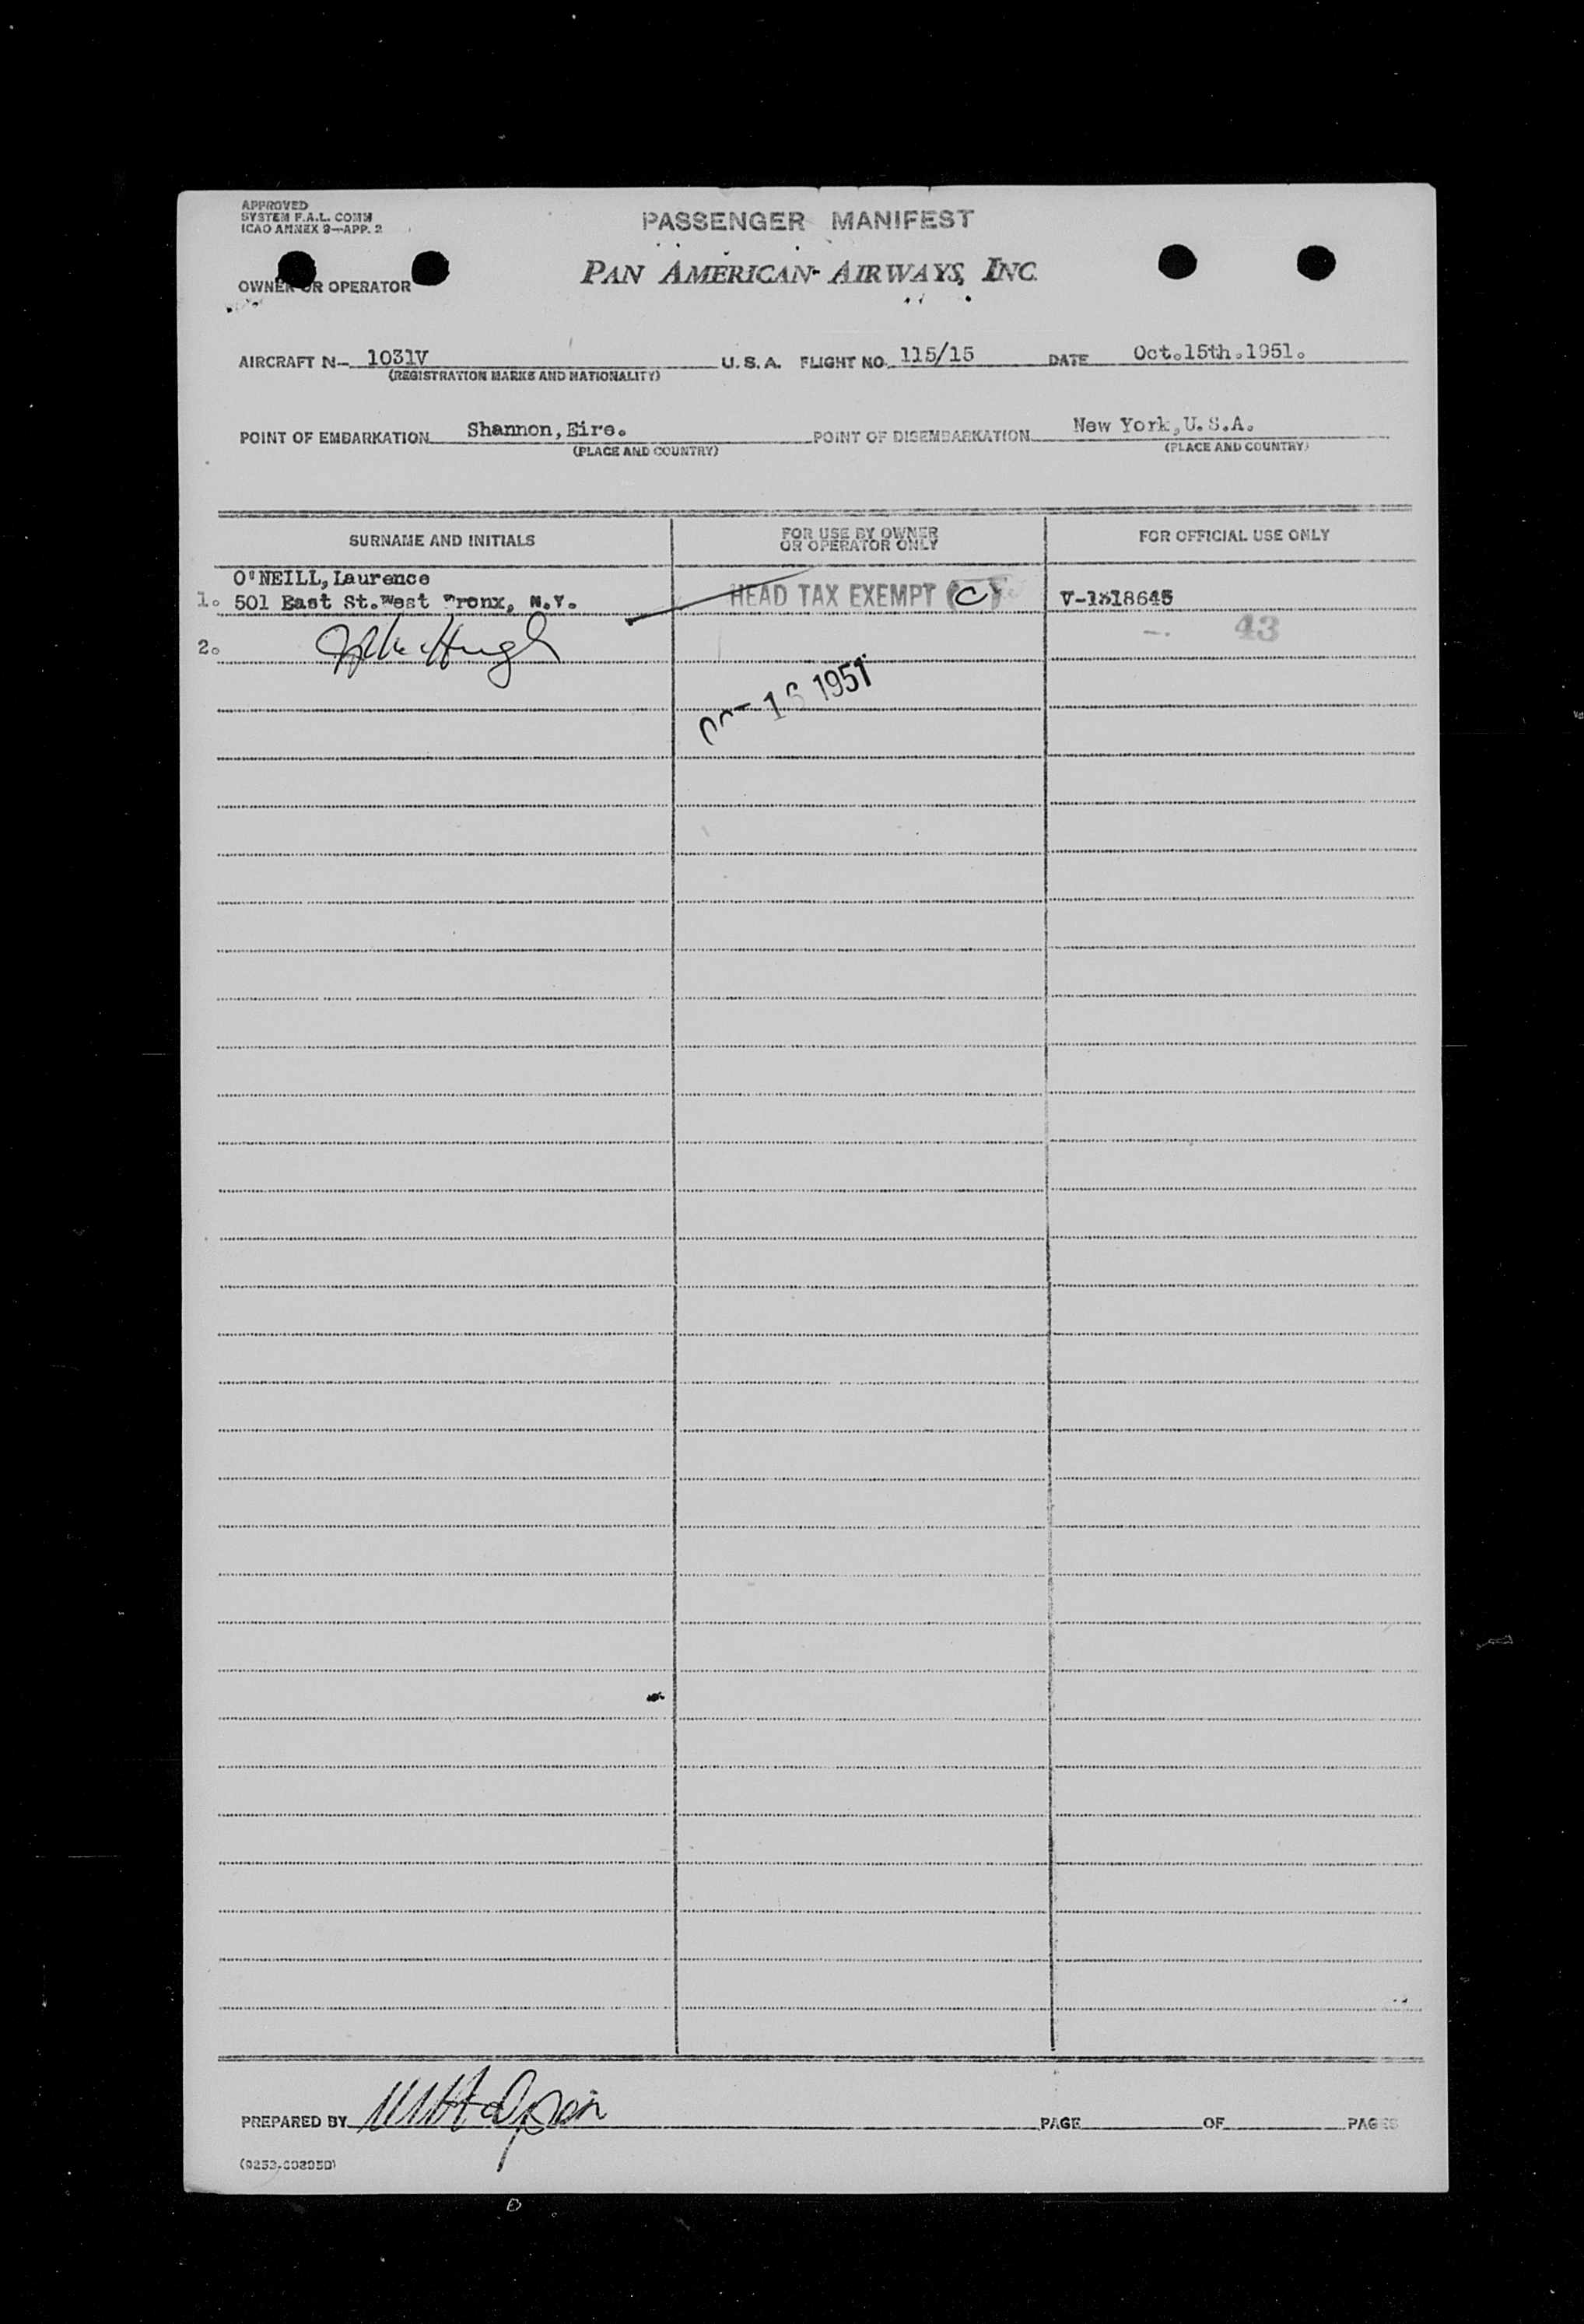 APPROVED
SYSTEM F.A.L. COMM
ICAO ANNEX 9—APP. 2
PASSENGER MANIFEST
OWNER OR OPERATOR
PAN AMERICAN AIRWAYS, INC.
AIRCRAFT N- 1031V U. S. A. FLIGHT NO. 115/15 DATE Oct.15th.1951.
(REGISTRATION MARKS AND NATIONALITY)
POINT OF EMBARKATION Shannon,Eire. POINT OF DISEMBARKATION New York,U.S.A.
(PLACE AND COUNTRY) (PLACE AND COUNTRY)
SURNAME AND INITIALS FOR USE BY OWNER OR OPERATOR ONLY FOR OFFICIAL USE ONLY
O'NEILL,Laurence
1. 501 East St.West Bronx, N.Y. HEAD TAX EXEMPT (C) V-1318645
2. 43
16 1951
PREPARED BY PAGE OF PAGES